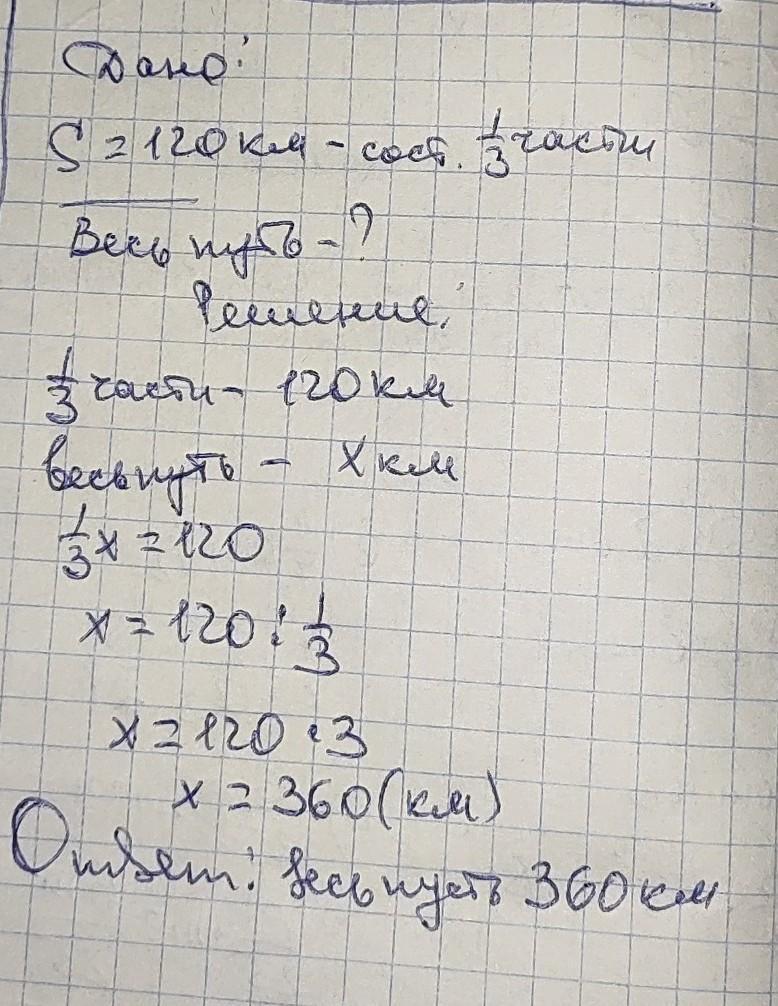 Дано:
S = 120 км - сост. 1/3 части
Весь путь - ?
Решение:
1/3 части - 120 км
весь путь - x км
1/3 x = 120
x = 120 : 1/3
x = 120 · 3
x = 360 (км)
Ответ: весь путь 360 км